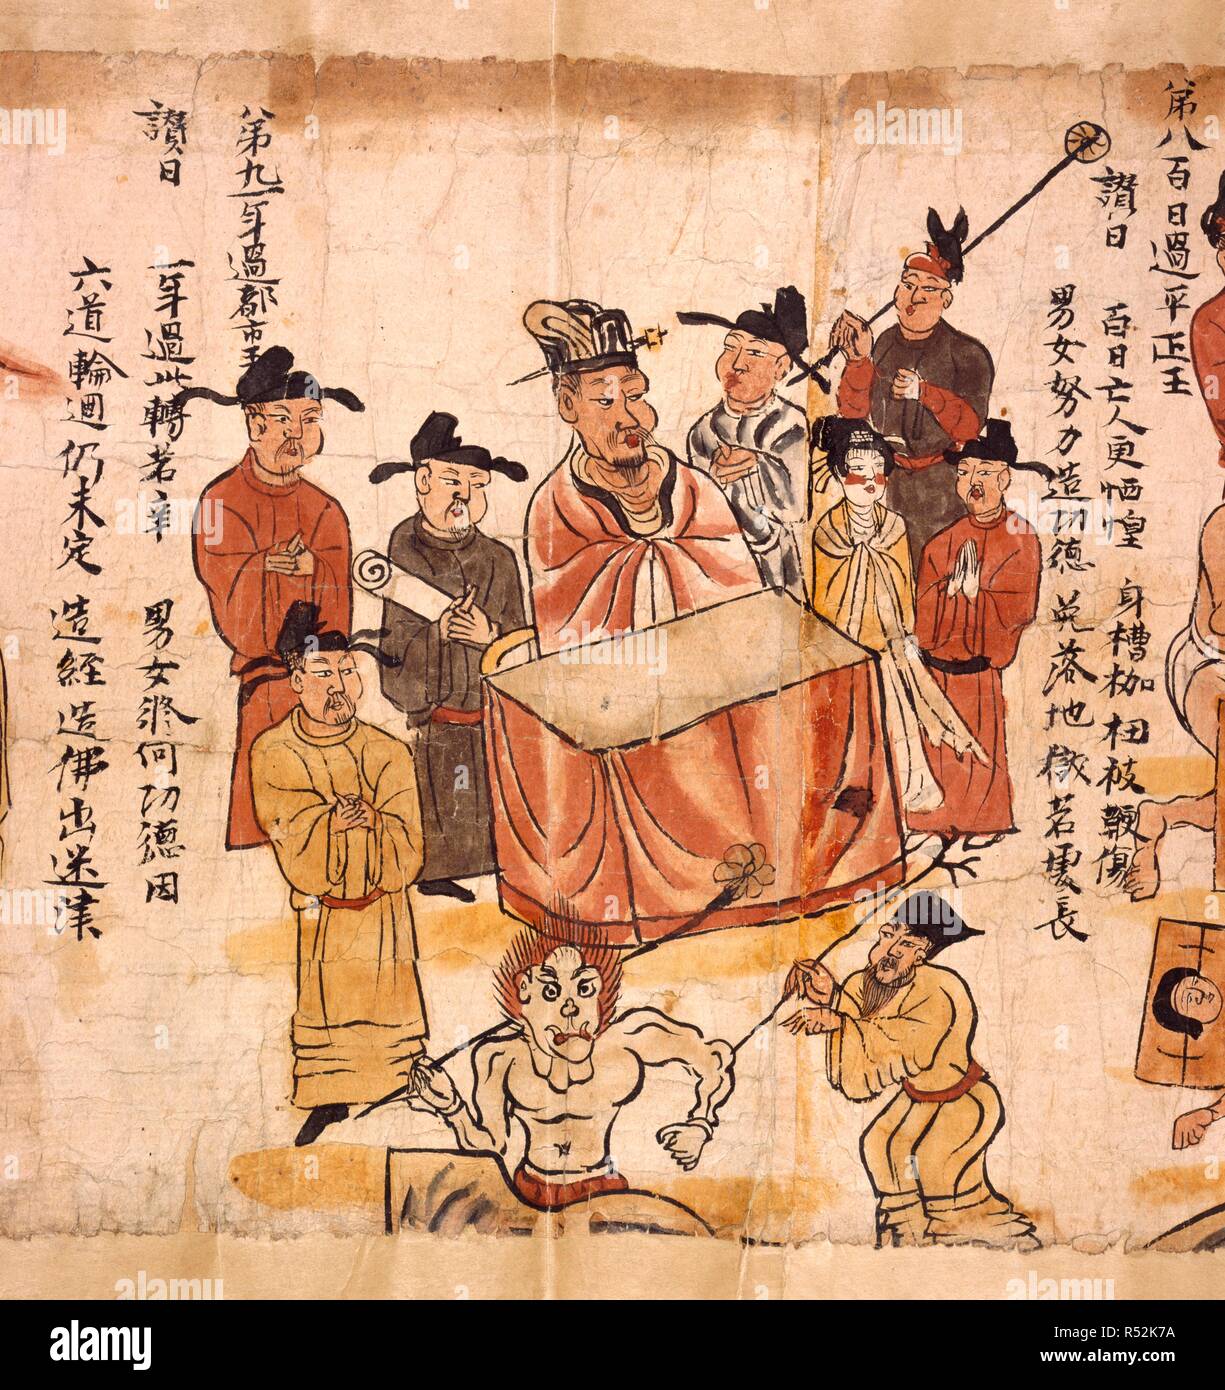 第八百日過平正王
讃曰
百日亡人更恓惶 身槽枷杻被鞭傷
男女努力造功德 兔落地獄若處長
第九一年過都市王
讃曰
一年過此轉若辛 男女修何功德因
六道輪迴仍未定 造經造佛出迷津
alamy
Image ID: R52K7A
www.alamy.com